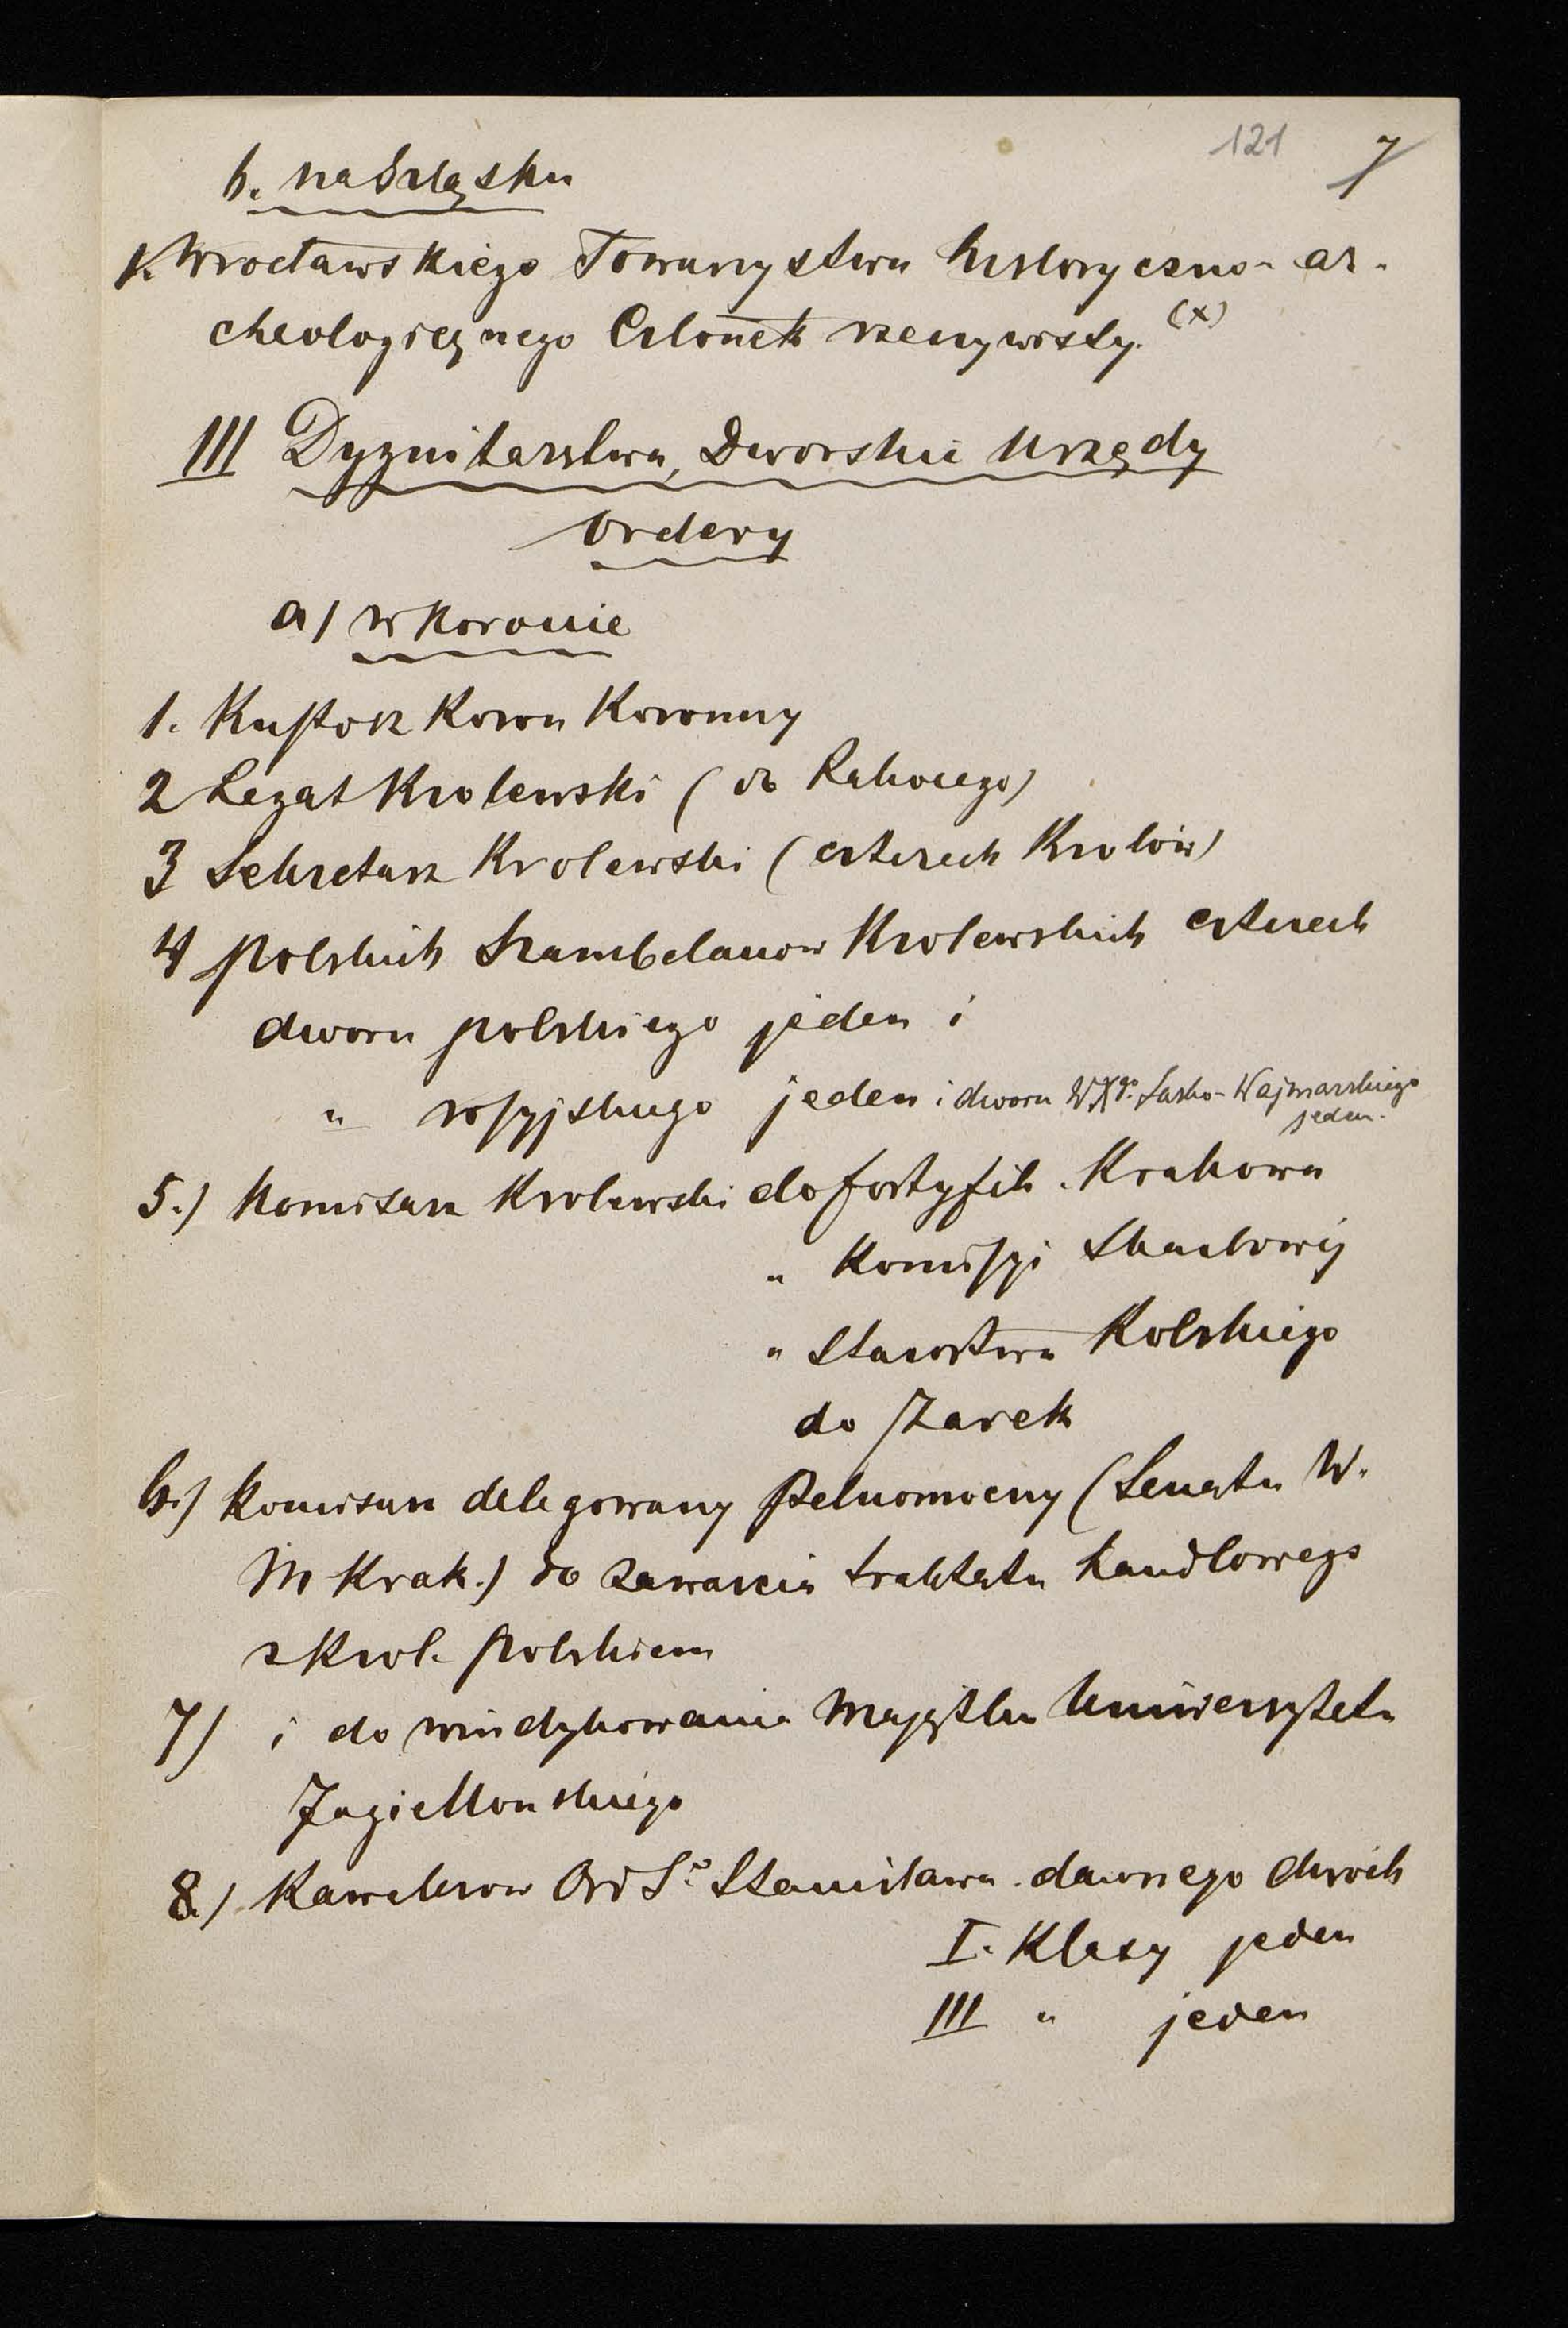 121 7
b. na Szląsku
1. Wrocławskiego Towarzystwa historyczno- ar-
cheologicznego Członek rzeczywisty. (x)
III Dygnitarstwa, Dworskie Urzędy
Ordery
a) w Koronie
1. Kustosz Koron Koronny
2 Legat Krolewski (do Rakocego)
3 Sekretarz Krolewski (czterech Krolów)
4 polskich Szambelanow Krolewskich czterech
dworu polskiego jeden i
" rossyjskiego jeden i dworu WXgo. Sasko-Wajmarskiego
jeden.
5.) Komisarz Krolewski do fortyfik. Krakowa
" Komissyi Skarbowéj
" Starostwa Kolskiego
do Żarek
6.) Komisarz delegowany Pełnomocny (Senatu W.
M Krak.) do zawarcia traktatu handlowego
z Krol. Polskiem
7) i do windykowania Majątku Uniwersytetu
Jagiellonskiego
8) Kawalerow Ord So Stanisława dawnego dwóch
I. Klasy jeden
III " jeden